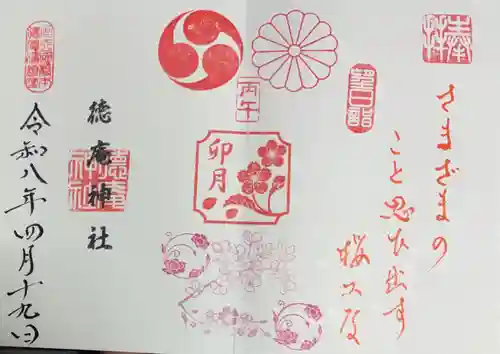 奉拝
さまざまの
こと思ひ出す
桜かな
朔日詣
丙午
卯月
徳庵神社
徳庵神社
令和八年四月十九日